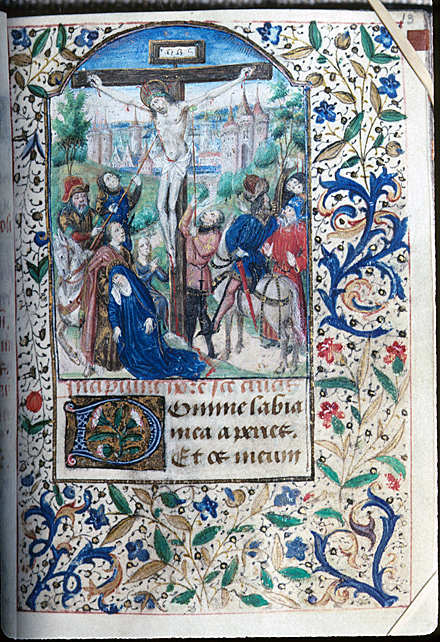 13
INRI
Incipiunt hore sce crucis
Domine labia
mea aperies.
Et os meum